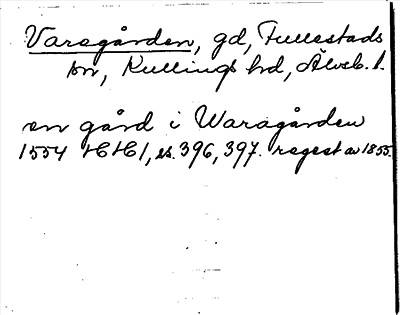 Varagården, gd, Fullestads
sn, Kullings hd, Älvsb. l.
en gård i Waragården
1554 HH 1, s. 396, 397. regest av 1855.